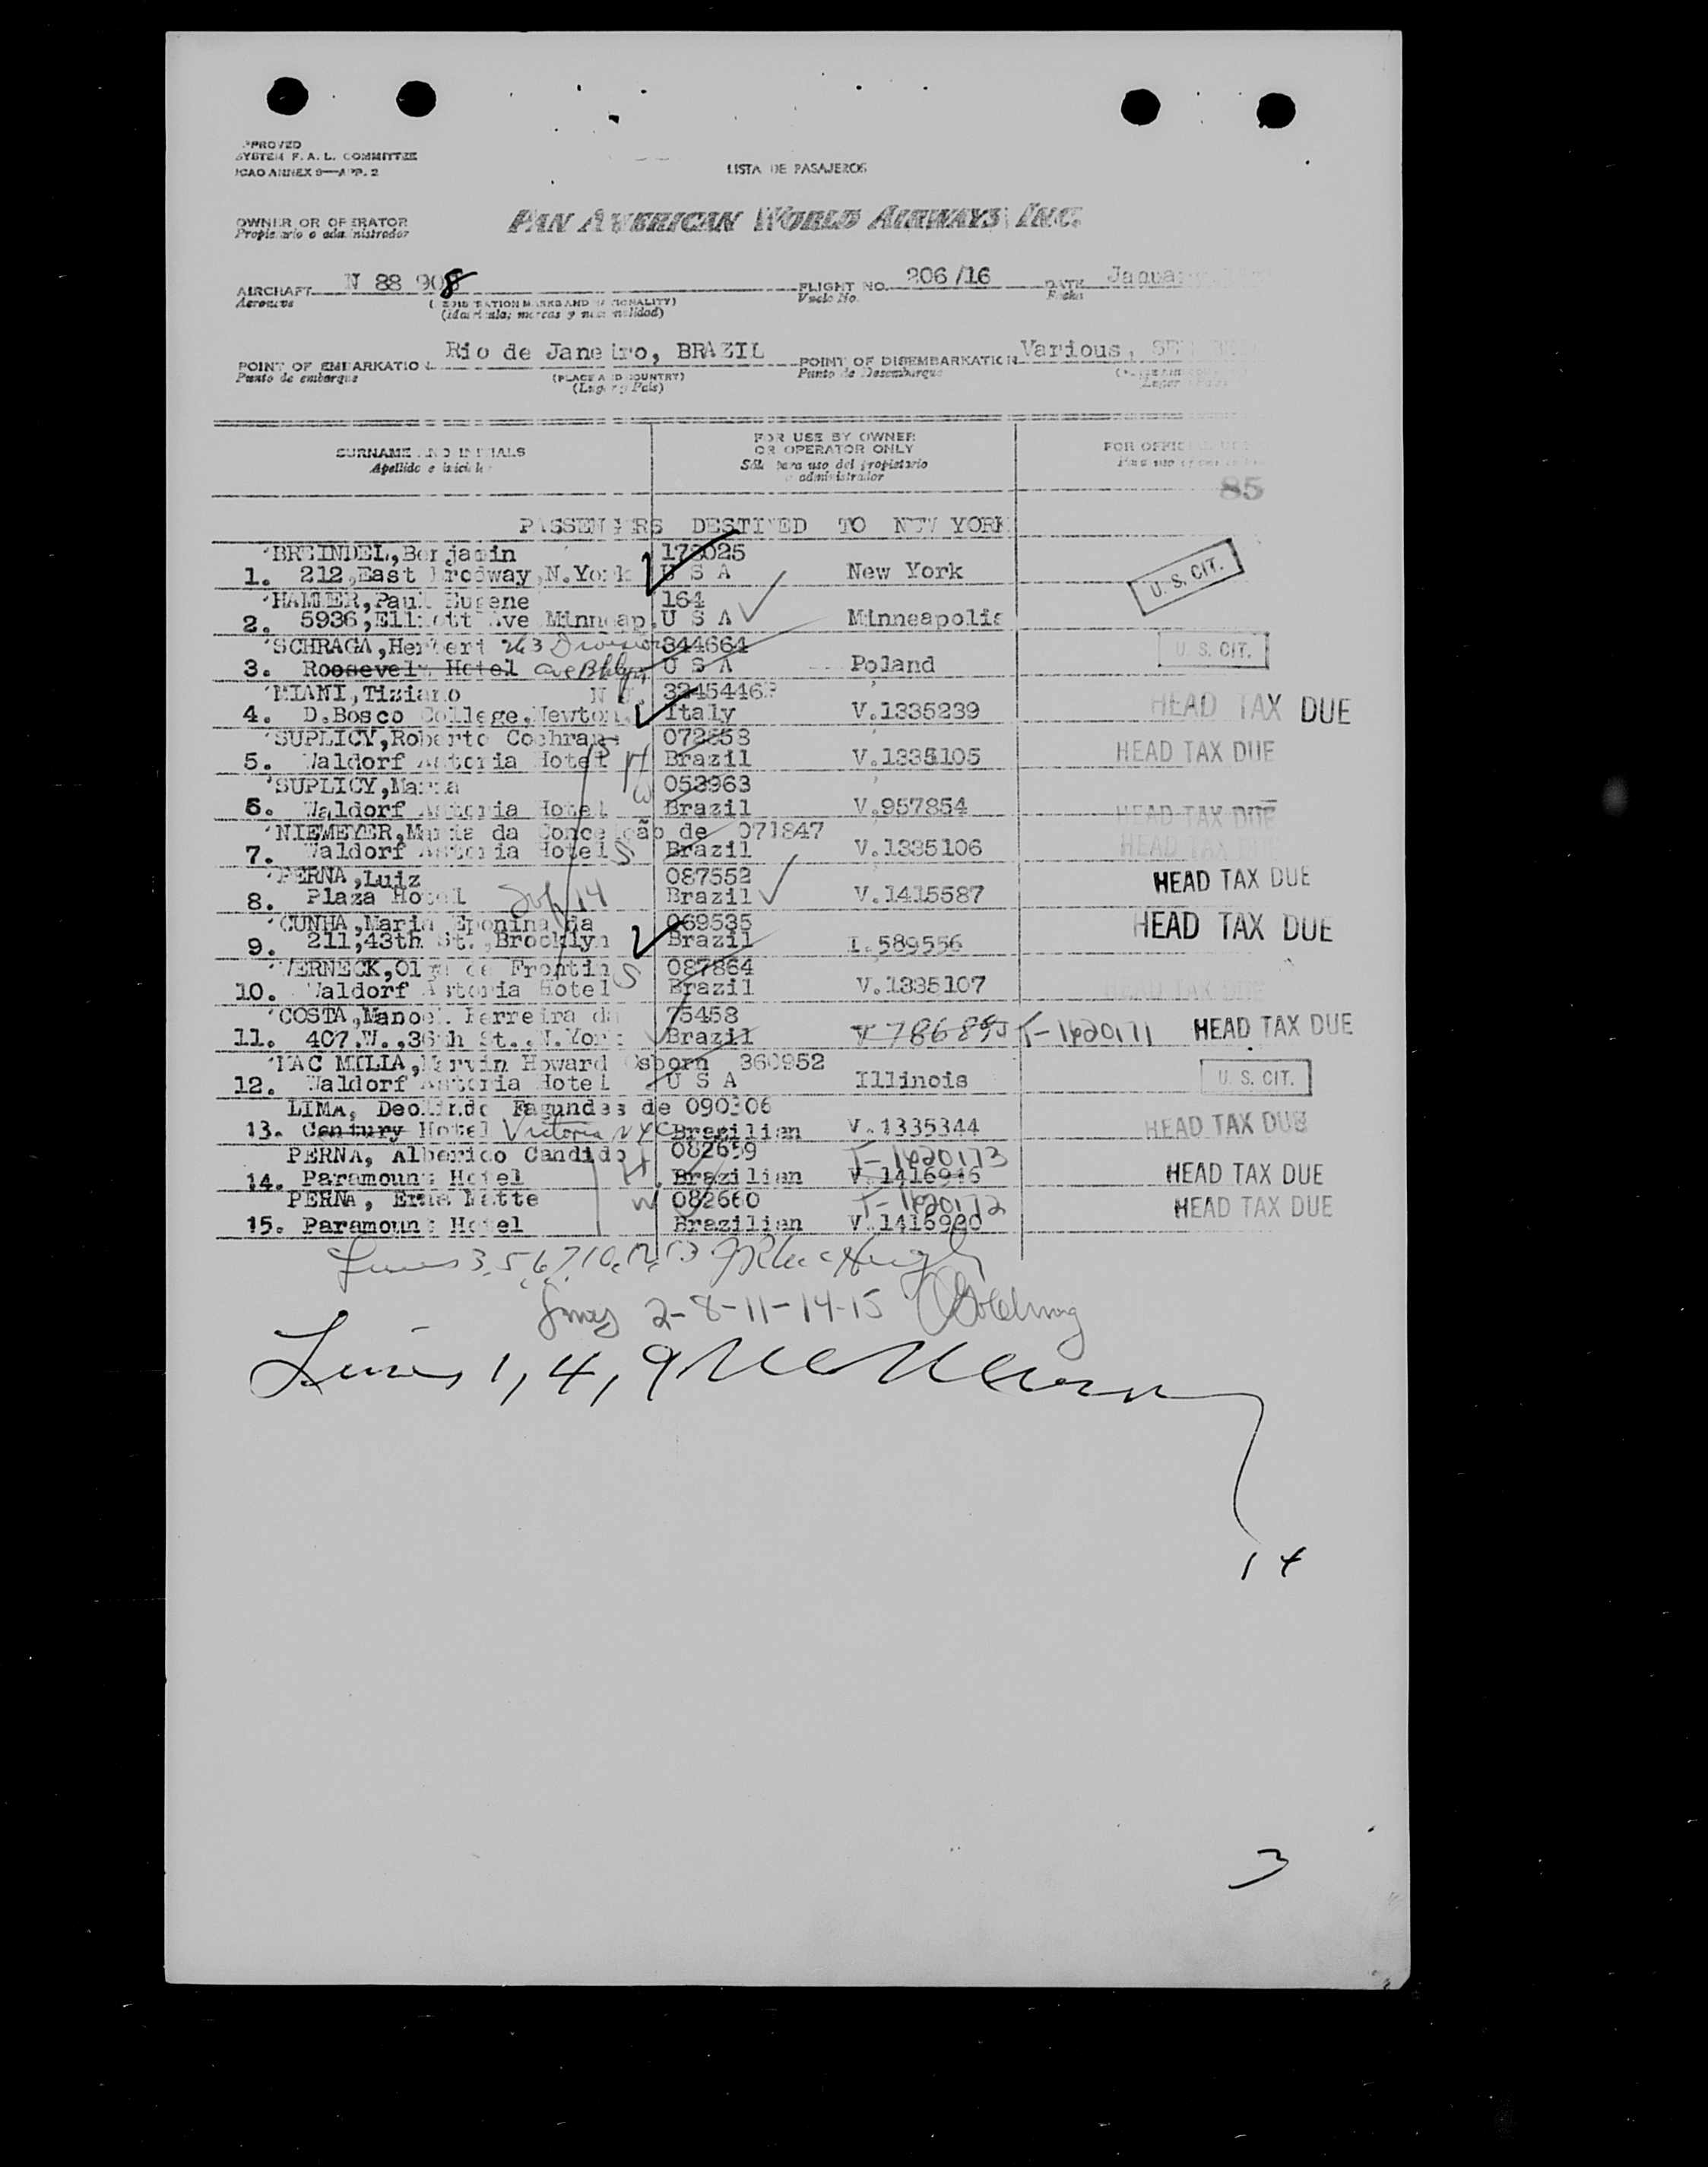 APPROVED
SYSTEM F. A. L. COMMITTEE
ICAO ANNEX 9—APP. 2
LISTA DE PASAJEROS
OWNER OR OPERATOR
Propietario o administrador
PAN AMERICAN WORLD AIRWAYS INC.
AIRCRAFT N 88 908 FLIGHT NO. 206/16 DATE
Aeronave Vuelo No. Fecha
(Matrícula; marcas y nacionalidad)
POINT OF EMBARKATION Rio de Janeiro, BRAZIL POINT OF DISEMBARKATION Various,
Punto de embarque Punto de Desembarque
(PLACE AND COUNTRY)
(Lugar y Pais)
SURNAME AND INITIALS FOR USE BY OWNER OR OPERATOR ONLY
Apellido e iniciales Sólo para uso del propietario o administrador
85
PASSENGERS DESTINED TO NEW YORK
BREINDEL, Benjamin
1. 212, East Brodway, N.York U S A New York U. S. CIT.
HAMMER, Paul Eugene 164
2. 5936, Elliott Ave Minneap. U S A Minneapolis U. S. CIT.
SCHRAGA, Herbert 263 Division 344664
3. Roosevelt Hotel Ave Bklyn U S A Poland
MIANI, Tiziano N.J.
4. D.Bosco College, Newton. Italy V.1335239 HEAD TAX DUE
SUPLICY, Roberto Cochrane
5. Waldorf Astoria Hotel H Brazil V.1335105 HEAD TAX DUE
SUPLICY, Maria W
6. Waldorf Astoria Hotel Brazil V.957854 HEAD TAX DUE
NIEMEYER, Maria da Conceição de 071847
7. Waldorf Astoria Hotel S Brazil V.1335106 HEAD TAX DUE
PERNA, Luiz 087552
8. Plaza Hotel Brazil V.1415587 HEAD TAX DUE
CUNHA, Maria Eponina da 069535
9. 211, 43th St., Brooklyn Brazil I.589556 HEAD TAX DUE
WERNECK, Olga de Frontin 087864
10. Waldorf Astoria Hotel S Brazil V.1335107 HEAD TAX DUE
COSTA, Manoel Ferreira da 75458
11. 407.W.,36th St., N.York Brazil T-1620171 HEAD TAX DUE
MAC MILIA, Marvin Howard Osborn 360952
12. Waldorf Astoria Hotel U S A Illinois U. S. CIT.
LIMA, Deolindo Fagundes de 090306
13. Century Hotel Victoria NYC Brazilian V.1335344 HEAD TAX DUE
PERNA, Alberico Candido H 082659 T-1620173
14. Paramount Hotel Brazilian HEAD TAX DUE
PERNA, Erna Matte W 082660 T-1620172
15. Paramount Hotel Brazilian V.1416920 HEAD TAX DUE
Lines 3, 5, 6, 7, 10, 12, 13
Lines 2-8-11-14-15
Lines 1, 4, 9
14
3